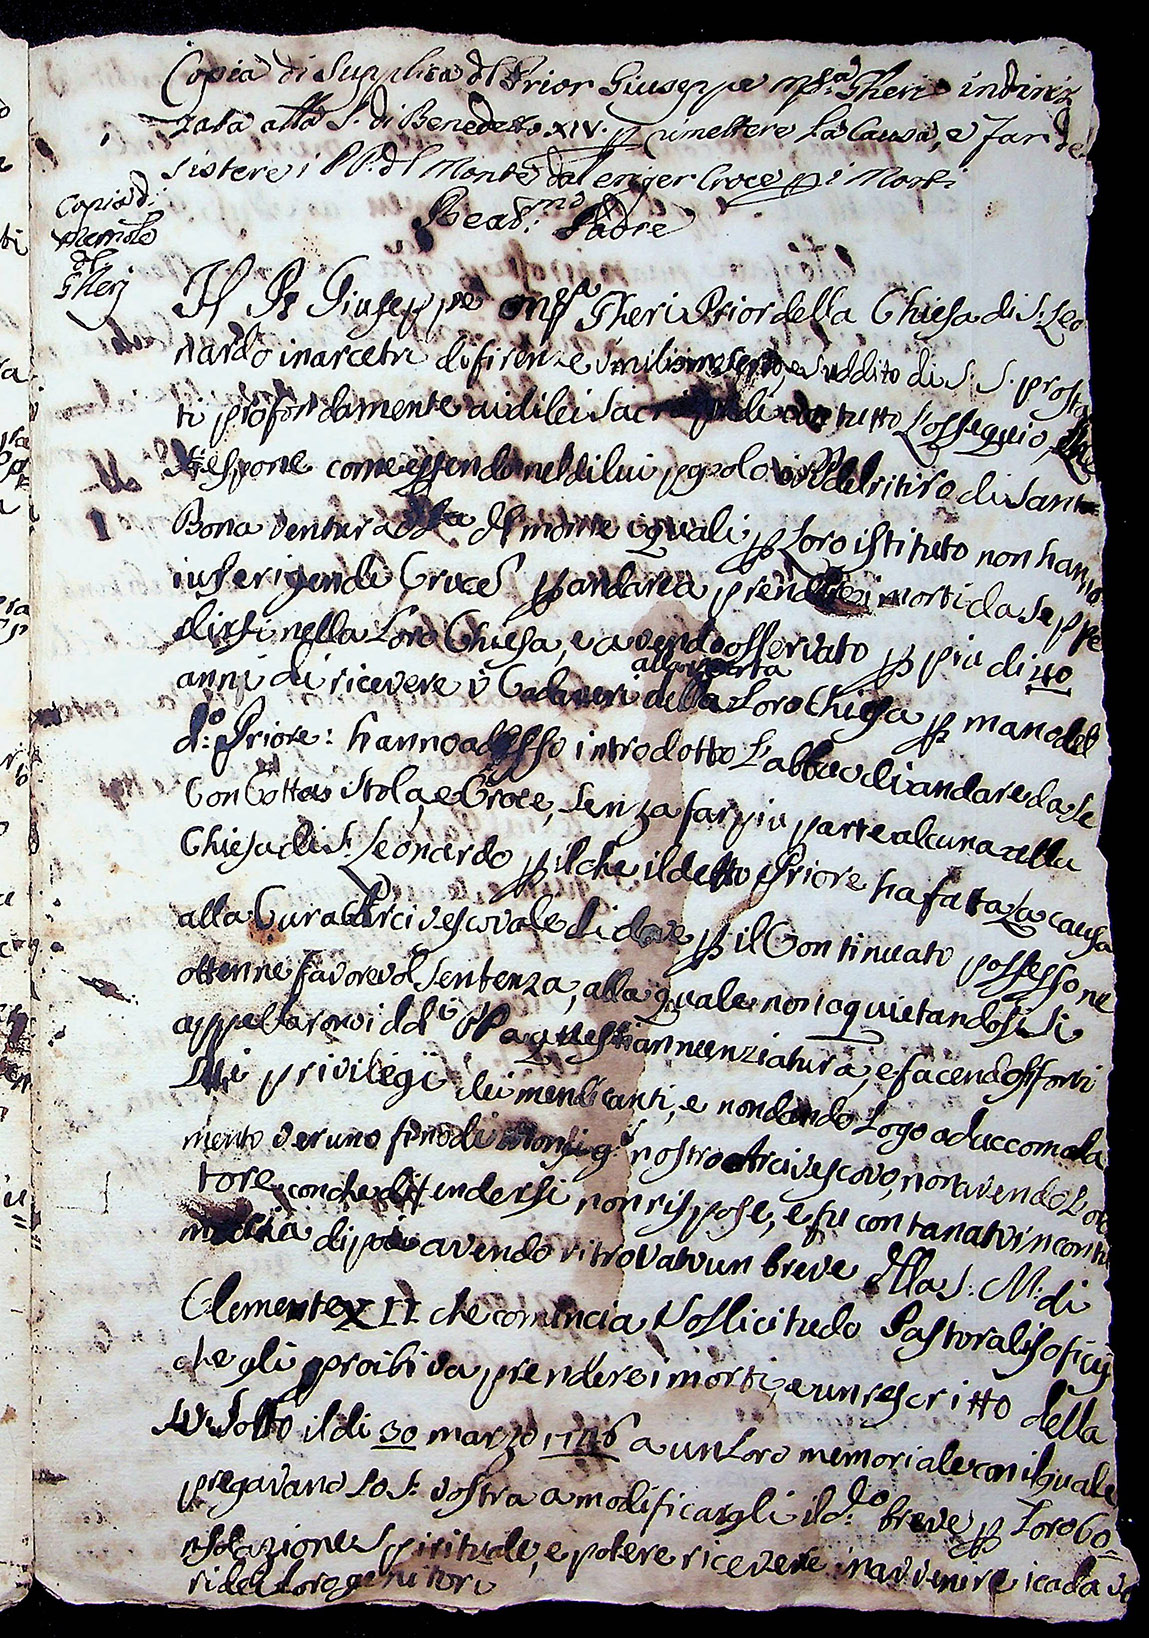 Copia di Supplica dl Prior Giuseppe M.a Gheri indiriz
zata alla S. di Benedetto XIV. p umettere la Causa, e far de
sistere i PP. dl Monte dal erger Croce p i Morti
Copia di
Memole
dl
Gherj
Bead.mo Padre
Il Pe Giuseppe Ma Gheri Prior della Chiesa di S. Leo
nardo in arcetri di firenze Umilissimo servo, e suddito di S. S. prosta
ti profondamente ai di lei sacri piedi con tutto l'ossequio,
espone come essendo nel di lui popolo i PP. del ritiro di Santa
Bona ventura dl monte i quali p Loro istituto non hanno
ius erigendi Crucem p andare a prendere i morti da sepe
lirsi nella Loro Chiesa, e avendo osservato p piu di 40
alla porta
anni di ricevere i Cadaveri della Loro Chiesa p mano del
d.o Priore: hanno adesso introdotto L'abuso di andare da se
Con Cotta, Stola, e Croce, senza far piu parte alcuna alla
Chiesa di S. Leonardo p il che il detto Priore ha fatta La causa
alla Curia Arcivescovale di dove p il Continuato possessone
ottenne favorevol Sentenza, alla quale non aquietandosi Si
appellarono i dd.i PP. a questa nunziatura, e facendosi forti
privilegi dei mendicanti, e non dando Logo ad accomoda
mento veruno fino di Monsig.r nostro Arcivescovo, non avendo L'ora
tore con che difendersi non rispose, e fu contanatu in contu
macia di poi avendo ritrovatu un breve dlla S. M. di
Clemente XII che comincia Sollicitudo Pastoralis oficij
che gli proibiva prendere i morti, e un rescritto della
sotto il di 30 marzo 1746 a un Loro memoriale con il quale
pregavano La S. vostra a modificargli il d.o breve p Loro Co-
nsolazione Spirituale, e potere ricevere in avvenire i cadave
ri dei Loro genitori